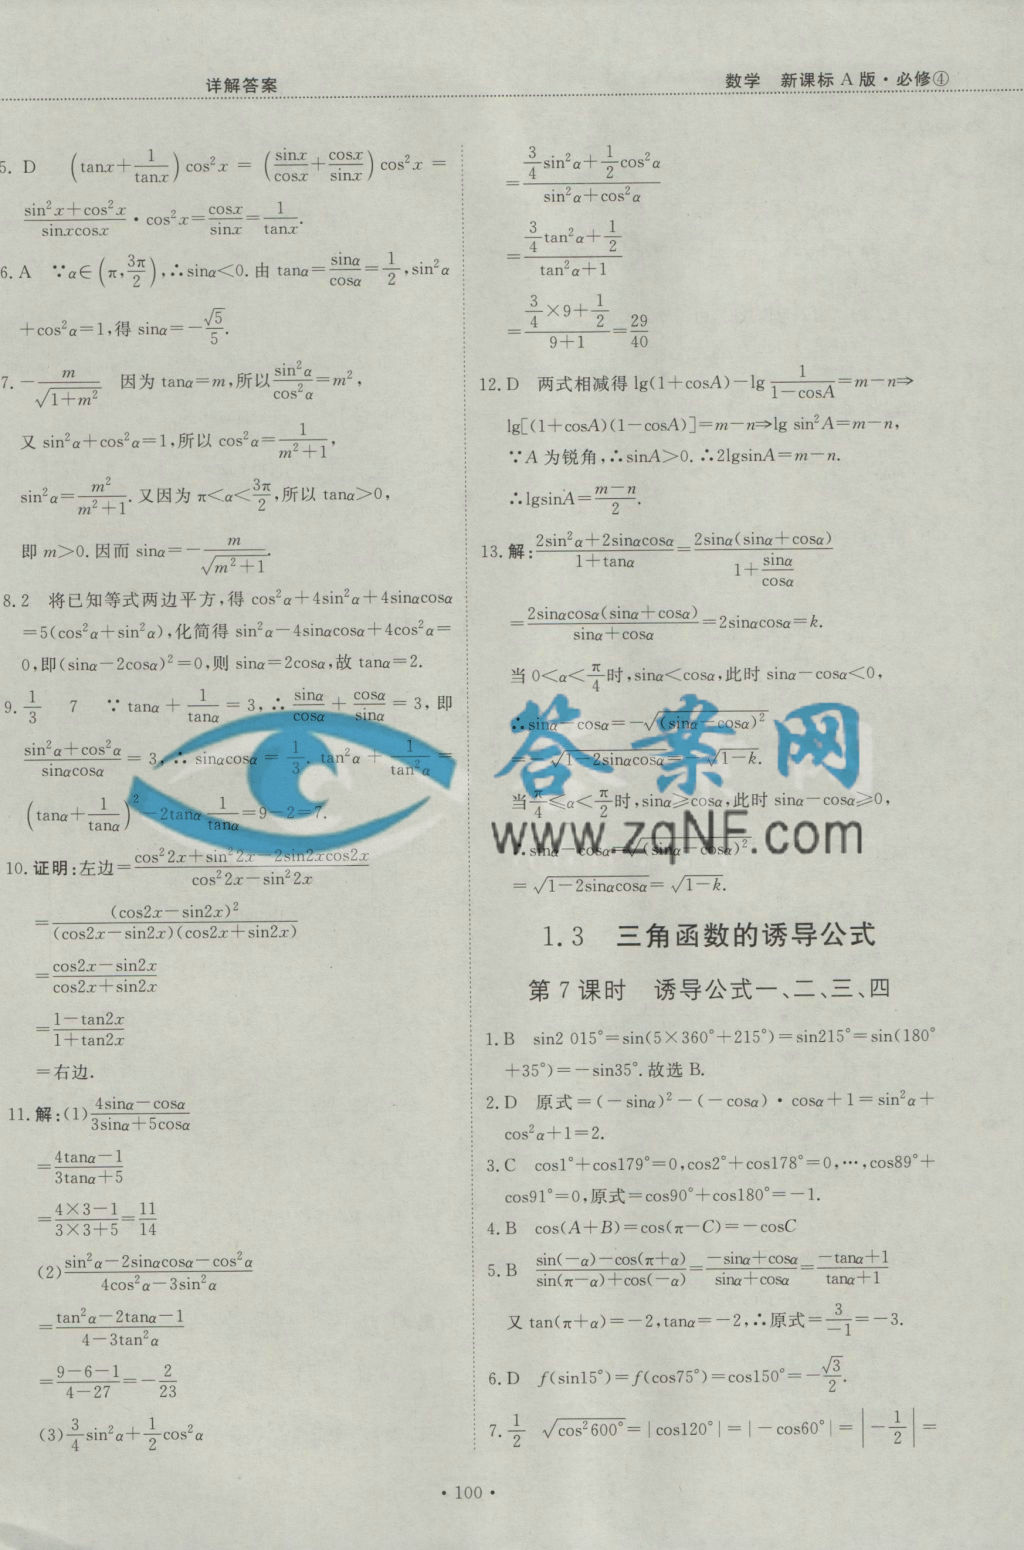 详解答案
数学 新课标A版·必修④
5. D (tanx+1/tanx)cos²x=(sinx/cosx+cosx/sinx)cos²x=
(sin²x+cos²x)/(sinxcosx)·cos²x=cosx/sinx=1/tanx.
6. A ∵α∈(π,3π/2),∴sinα<0.由 tanα=sinα/cosα=1/2,sin²α
+cos²α=1,得 sinα=-√5/5.
7. -m/√(1+m²) 因为 tanα=m,所以sin²α/cos²α=m²,
又 sin²α+cos²α=1,所以 cos²α=1/(m²+1),
sin²α=m²/(m²+1).又因为 π<α<3π/2,所以 tanα>0,
即 m>0.因而 sinα=-m/√(m²+1).
8. 2 将已知等式两边平方,得 cos²α+4sin²α+4sinαcosα
=5(cos²α+sin²α),化简得 sin²α-4sinαcosα+4cos²α=
0,即(sinα-2cosα)²=0,则 sinα=2cosα,故 tanα=2.
9. 1/3 7 ∵tanα+1/tanα=3,∴sinα/cosα+cosα/sinα=3,即
(sin²α+cos²α)/(sinαcosα)=3,∴sinαcosα=1/3. tan²α+1/tan²α=
(tanα+1/tanα)²-2tanα 1/tanα=9-2=7.
10. 证明:左边=(cos²2x+sin²2x-2sin2xcos2x)/(cos²2x-sin²2x)
=(cos2x-sin2x)²/((cos2x-sin2x)(cos2x+sin2x))
=(cos2x-sin2x)/(cos2x+sin2x)
=(1-tan2x)/(1+tan2x)
=右边.
11. 解:(1)(4sinα-cosα)/(3sinα+5cosα)
=(4tanα-1)/(3tanα+5)
=(4×3-1)/(3×3+5)=11/14
(2)(sin²α-2sinαcosα-cos²α)/(4cos²α-3sin²α)
=(tan²α-2tanα-1)/(4-3tan²α)
=(9-6-1)/(4-27)=-2/23
(3)3/4sin²α+1/2cos²α
=(3/4sin²α+1/2cos²α)/(sin²α+cos²α)
=(3/4tan²α+1/2)/(tan²α+1)
=(3/4×9+1/2)/(9+1)=29/40
12. D 两式相减得 lg(1+cosA)-lg 1/(1-cosA)=m-n⇒
lg[(1+cosA)(1-cosA)]=m-n⇒lg sin²A=m-n,
∵A 为锐角,∴sinA>0.∴2lgsinA=m-n.
∴lgsinA=(m-n)/2.
13. 解:(2sin²α+2sinαcosα)/(1+tanα)=2sinα(sinα+cosα)/(1+sinα/cosα)
=2sinαcosα(sinα+cosα)/(sinα+cosα)=2sinαcosα=k.
当 0<α<π/4时,sinα<cosα,此时 sinα-cosα<0,
∴sinα-cosα=-√(sinα-cosα)²
=-√(1-2sinαcosα)=-√(1-k).
当π/4≤α<π/2时,sinα≥cosα,此时 sinα-cosα≥0,
∴sinα-cosα=√(sinα-cosα)²
=√(1-2sinαcosα)=√(1-k).
答案网
www.zqNF.com
1.3 三角函数的诱导公式
第 7 课时 诱导公式一、二、三、四
1. B sin2 015°=sin(5×360°+215°)=sin215°=sin(180°
+35°)=-sin35°.故选 B.
2. D 原式=(-sinα)²-(-cosα)·cosα+1=sin²α+
cos²α+1=2.
3. C cos1°+cos179°=0,cos2°+cos178°=0,…,cos89°+
cos91°=0,原式=cos90°+cos180°=-1.
4. B cos(A+B)=cos(π-C)=-cosC
5. B (sin(-α)-cos(π+α))/(sin(π-α)+cos(-α))=(-sinα+cosα)/(sinα+cosα)=(-tanα+1)/(tanα+1)
又 tan(π+α)=-2,tanα=-2,∴原式=3/-1=-3.
6. D f(sin15°)=f(cos75°)=cos150°=-√3/2.
7. 1/2 √(cos²600°)=|cos120°|=|-cos60°|=|-1/2|=
·100·